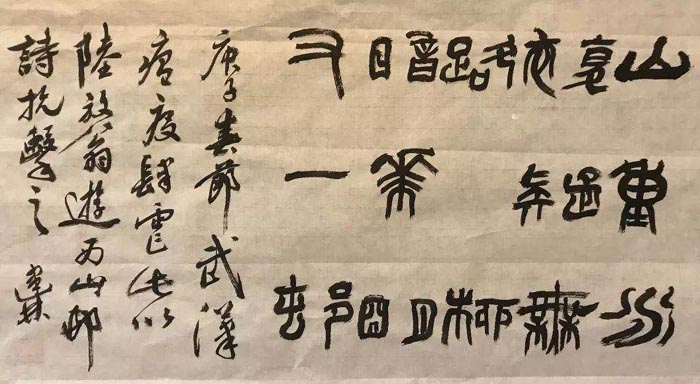 山重水
複疑無
路柳
暗花明
又一邨
庚子春節武漢
瘟疫肆虐此以
陸放翁遊西山邨
詩抗擊之